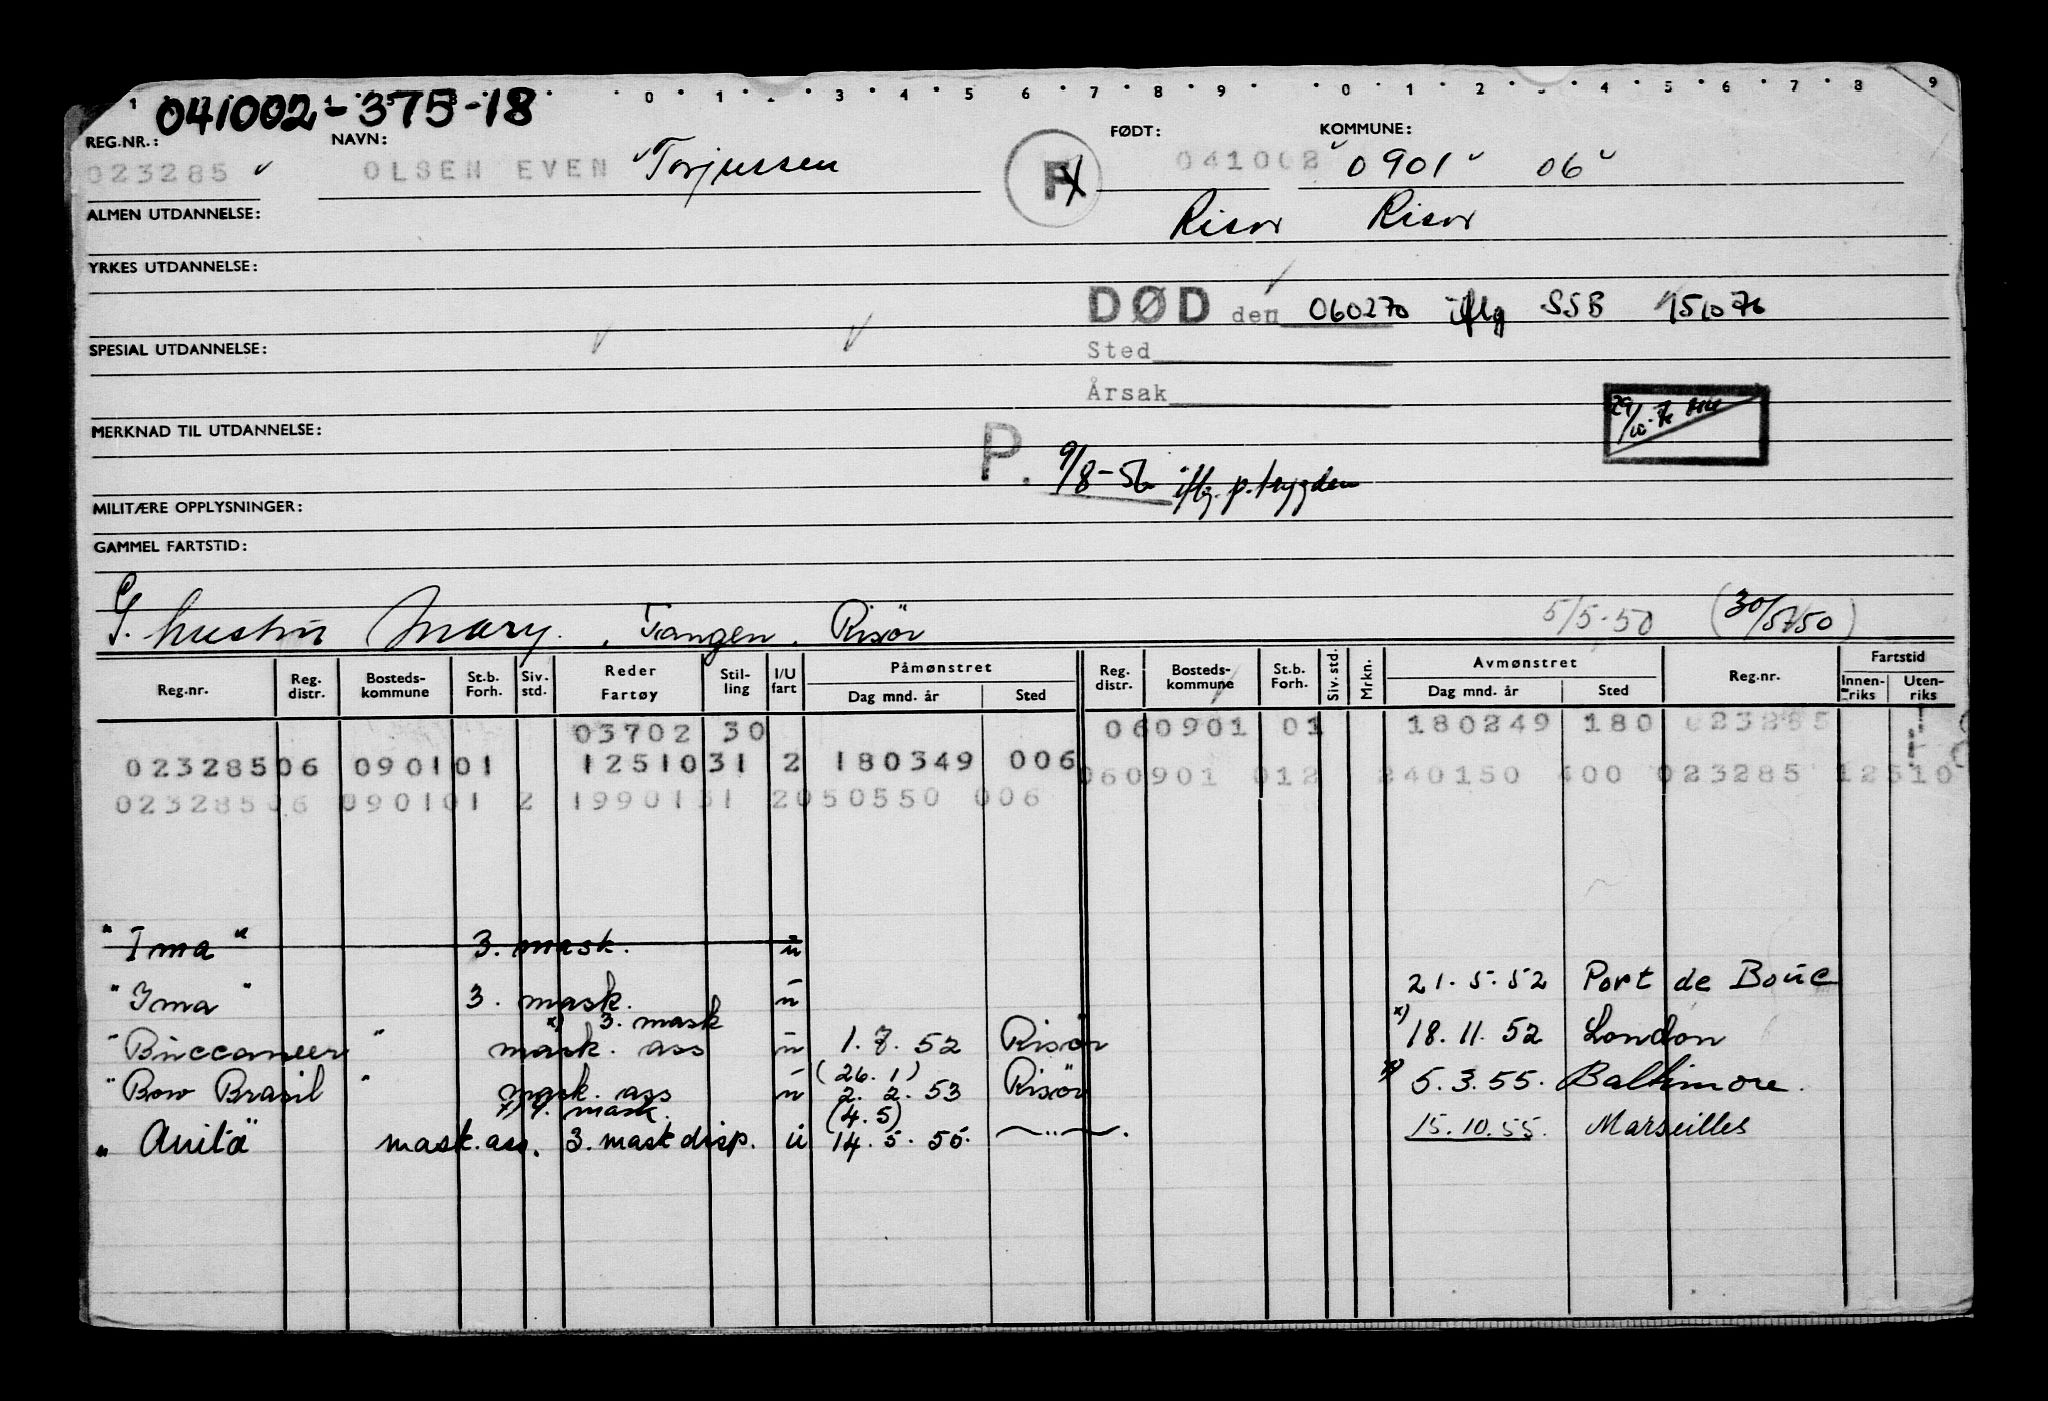 041002-375-18
1 0 1 2 3 4 5 6 7 8 9 0 1 2 3 4 5 6 7 8 9
REG.NR.: NAVN: FØDT: KOMMUNE:
023285 OLSEN EVEN Torjussen F 041002 0901 06
ALMEN UTDANNELSE: Risør Risør
YRKES UTDANNELSE:
DØD den 060270 iflg SSB 151076
SPESIAL UTDANNELSE: Sted
Årsak
29/10-76
MERKNAD TIL UTDANNELSE:
P. 9/8-56 iflg. p.trygden
MILITÆRE OPPLYSNINGER:
GAMMEL FARTSTID:
G. hustru Mary, Tangen, Risör 5/5-50 (30/5/50)
Reg.nr. Reg. distr. Bosteds-kommune St.b. Forh. Siv. std. Reder Fartøy Stil-ling I/U fart Påmønstret Dag mnd. år Sted Reg. distr. Bosteds-kommune St.b. Forh. Siv. std. Mrkn. Avmønstret Dag mnd. år Sted Reg.nr. Fartstid Innen-riks Uten-riks
03702 30 060901 01 180249 180 023285
02328506 090101 1251031 2 180349 006 060901 012 240150 400 023285 12510
02328506 090101 2 1990131 2050550 006
"Ima" 3. mask. u
"Ima" 3. mask. u 21.5.52 Port de Bouc
x) 3. mask
"Buccaneer" mask. ass u 1.8.52 Risör x) 18.11.52 London
(26.1)
"Bow Brasil" mask. ass u 2.2.53 Risör x) 5.3.55. Baltimore.
x) 9. mask. (4.5)
"Anita" mask. ass. 3. mask disp. u 14.5.55. —"—. 15.10.55. Marseilles